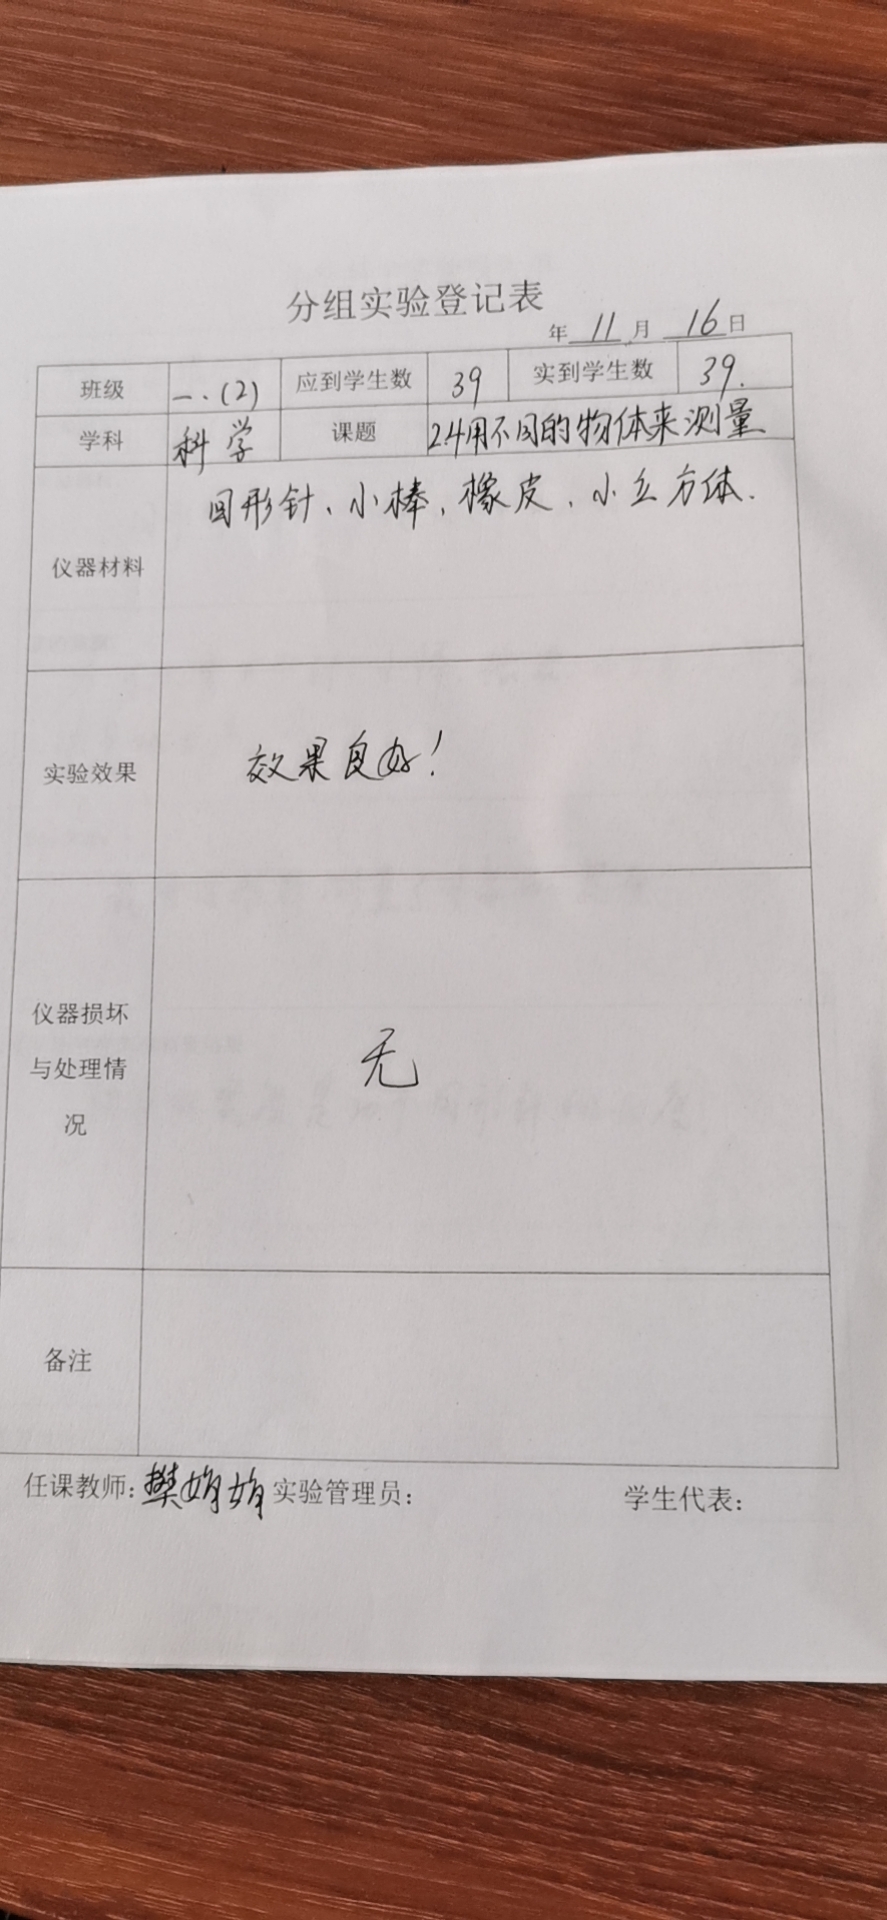 分组实验登记表
年 11 月 16 日
班级 一.(2) 应到学生数 39 实到学生数 39.
学科 科学 课题 2.4用不同的物体来测量
仪器材料 回形针、小棒、橡皮、小立方体.
实验效果 效果良好!
仪器损坏
与处理情
况
无
备注
任课教师: 樊娟娟 实验管理员: 学生代表: